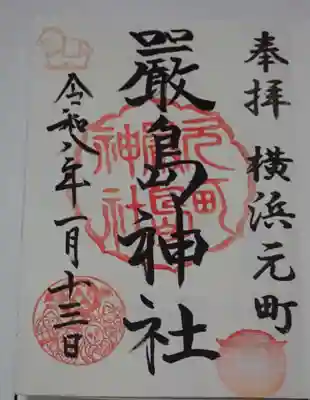 奉拝 横浜元町
嚴島神社
元町嚴島神社
令和八年一月十三日